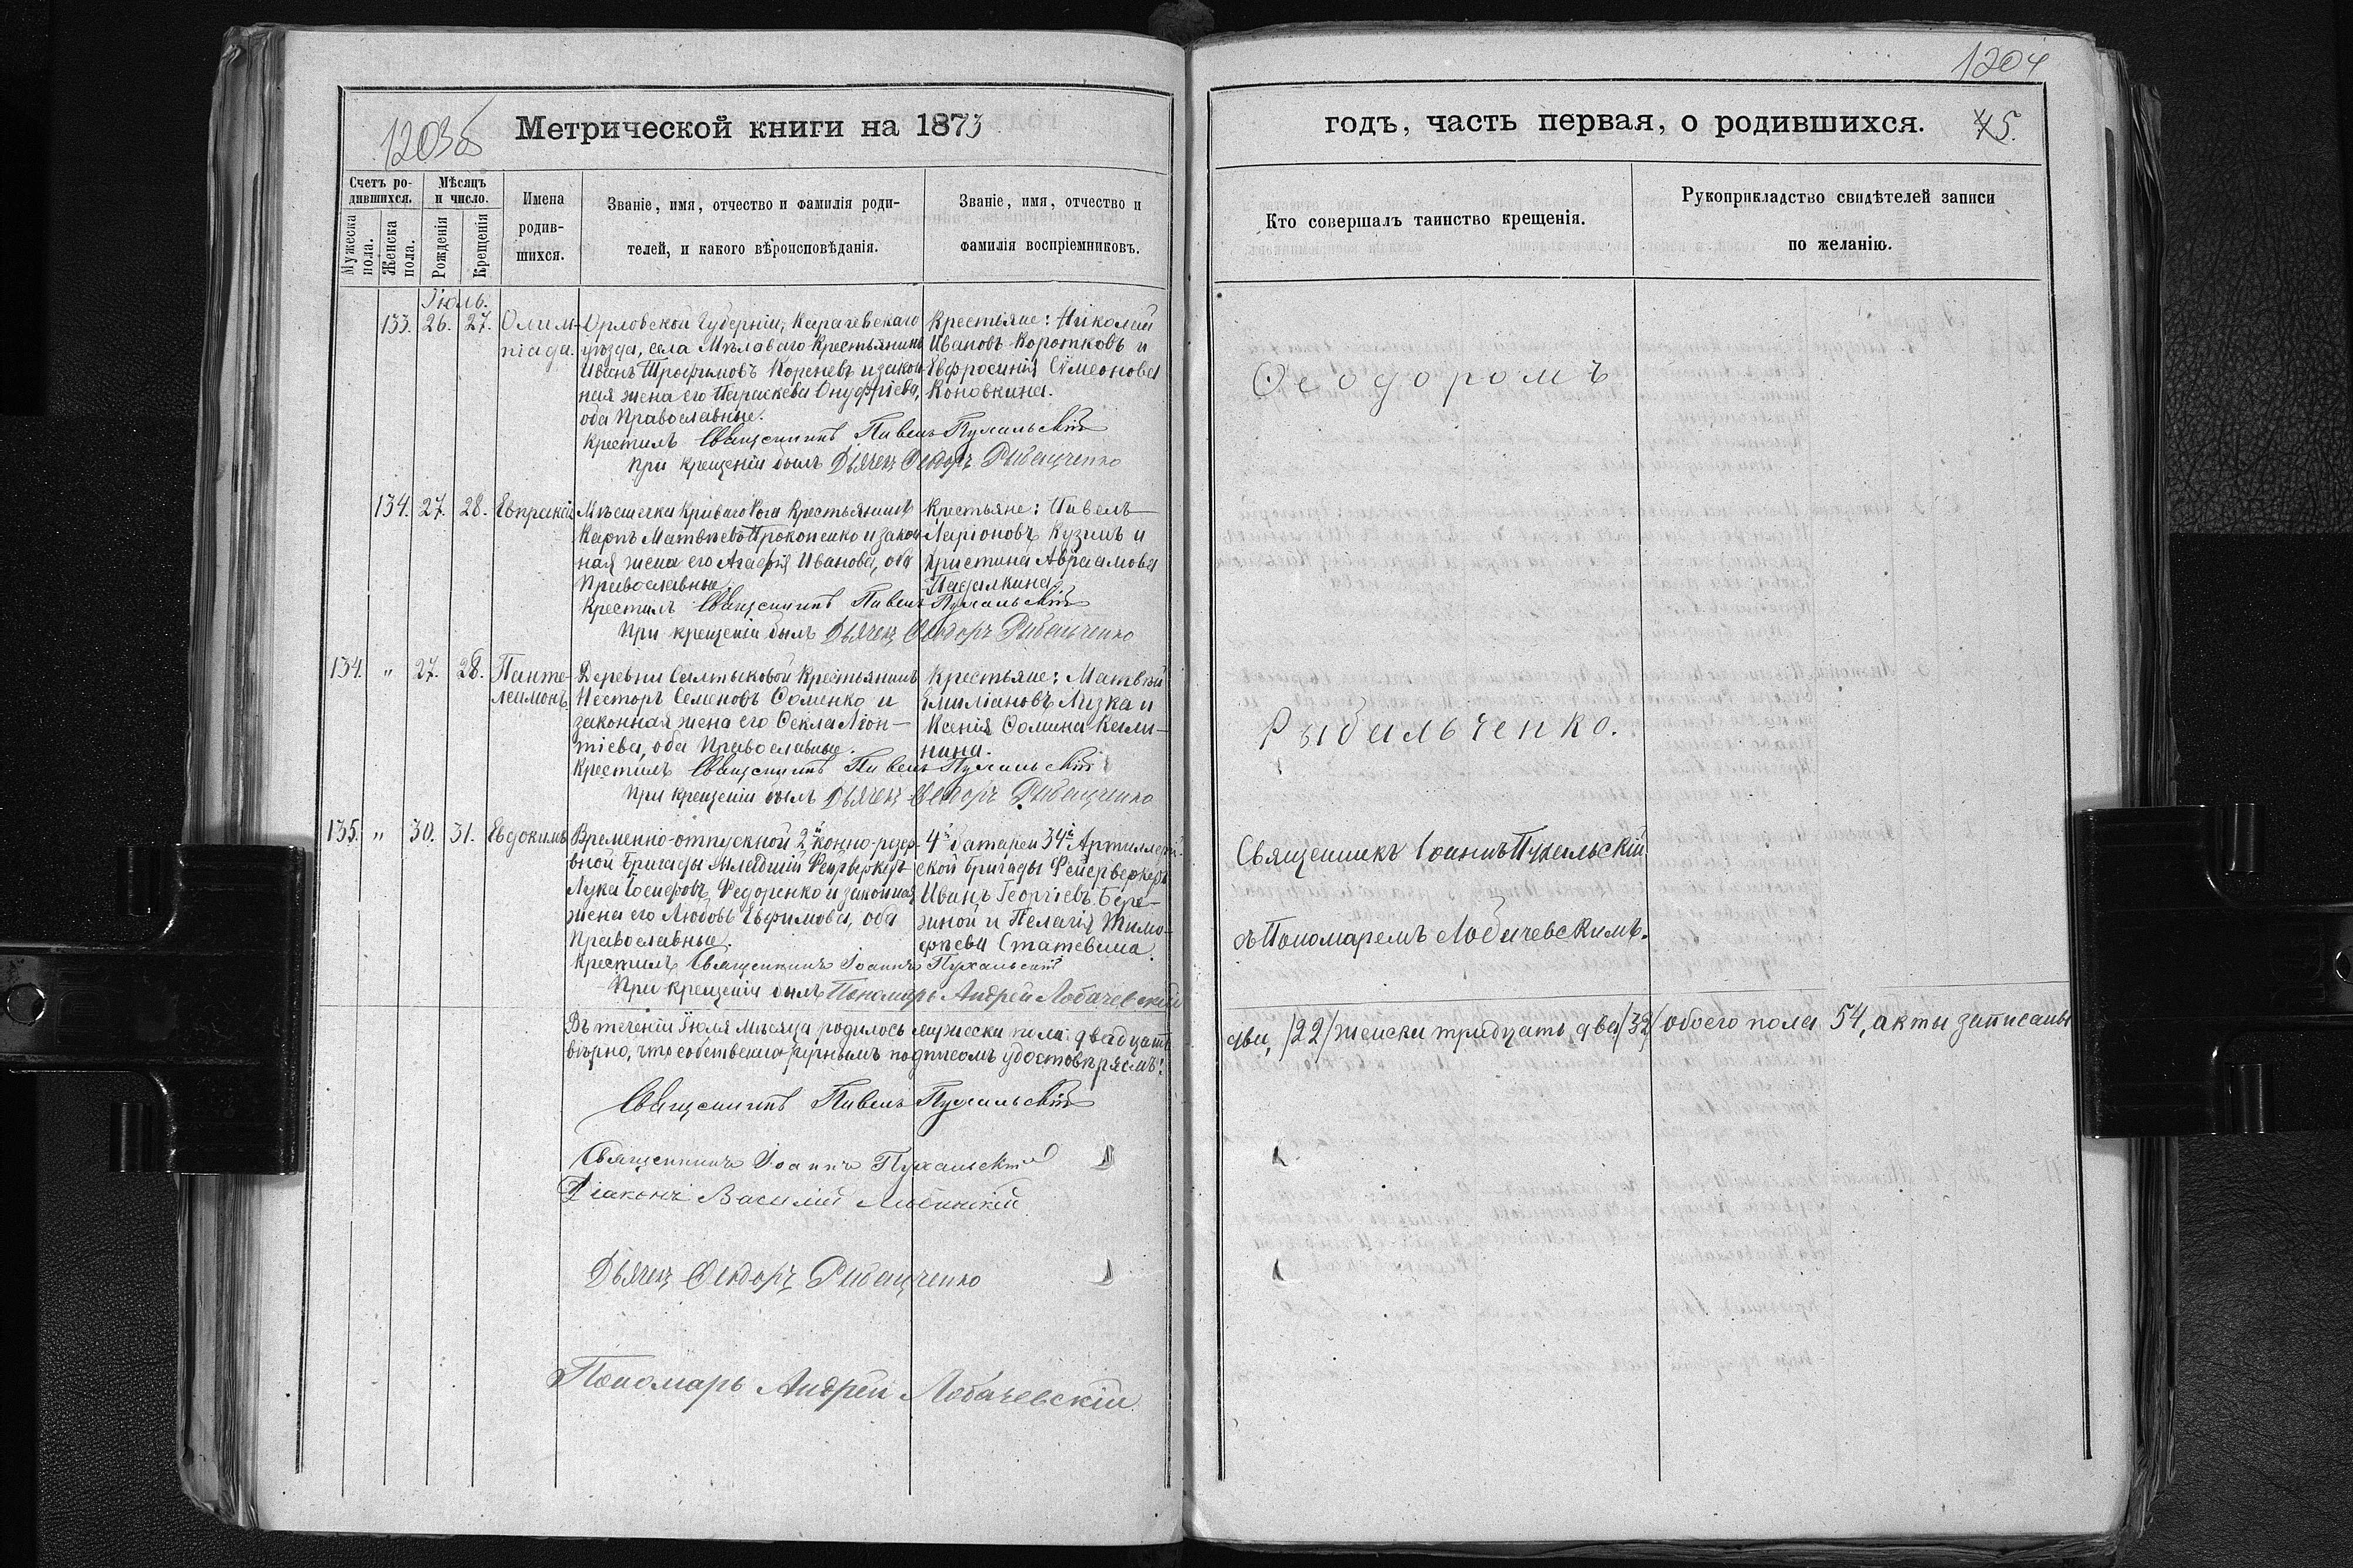 1203об
Метрической книги на 1873
Счетъ ро-
дившихся.
Мѣсяцъ
и число.
Мужеска
пола.
Женска
пола.
Рожденія
Крещенія
Имена
родив-
шихся.
Званіе, имя, отчество и фамилія роди-
телей, и какого вѣроисповѣданія.
Званіе, имя, отчество и
фамилія воспріемниковъ.
Іюль.
133. 26. 27. Олим-
піада.
Орловской Губерніи, Карачевскаго
уѣзда, села Мѣловаго Крестьянинъ
Иванъ Трофимовъ Кореневъ и закон-
ная жена его Параскева Онуфріева,
оба Православные.
Крестьяне: Николай
Ивановъ Коротковъ и
Евфросинія Симеонова
Коновкина.
Крестилъ Священникъ Павелъ Пухальскій
При крещеніи былъ Дьячекъ Ѳеодоръ Рыбальченко
134. 27. 28. Евпраксія
Мѣстечка Криваго Рога Крестьянинъ
Карпъ Матвѣевъ Прокопенко и закон
ная жена его Агафія Иванова, оба
Православные.
Крестьяне: Павелъ
Ларіоновъ Кузинъ и
Христина Авраамова
Падалкина.
Крестилъ Священникъ Павелъ Пухальскій
При крещеніи былъ Дьячекъ Ѳеодоръ Рыбальченко
134. " 27. 28. Панте-
леимонъ
Деревни Салтыковой Крестьянинъ
Несторъ Семеновъ Ѳоменко и
законная жена его Ѳекла Леон-
тіева, оба Православные.
Крестьяне: Матвѣй
Емиліановъ Лизка и
Ксенія Ѳомина Кали-
нина.
Крестилъ Священникъ Павелъ Пухальскій
При крещеніи былъ Дьячекъ Ѳеодоръ Рыбальченко
135. " 30. 31. Евдокимъ
Временно-отпускной 2й конно-резер-
вной бригады Младшій Фейрверкеръ
Лука Іосифовъ Федоренко и законная
жена его Любовь Евфимова, оба
Православные.
4й батареи 34й Артиллерій-
ской бригады Фейерверкеръ
Иванъ Георгіевъ Бере-
жной и Пелагія Тимо-
фѣева Статевина.
Крестилъ Священникъ Іоаннъ Пухальскій
При крещеніи былъ Пономарь Андрей Лобачевскій
Въ теченіи Іюля мѣсяца родилось мужеска пола: двадцать
вѣрно, что собственноручнымъ подписомъ удостовѣряемъ:
Священникъ Павелъ Пухальскій
Священникъ Іоаннъ Пухальскій
Діаконъ Василій
Дьячекъ Ѳеодоръ Рыбальченко
Пономарь Андрей Лобачевскій
1204
годъ, часть первая, о родившихся.
75.
Кто совершалъ таинство крещенія.
Рукоприкладство свидѣтелей записи
по желанію.
Ѳеодоромъ
Рыбальченко.
Священникъ Іоаннъ Пухальскій
съ Пономаремъ Лобачевскимъ.
два, /22/ женска тридцать два /32/ обоего пола 54, акты записаны